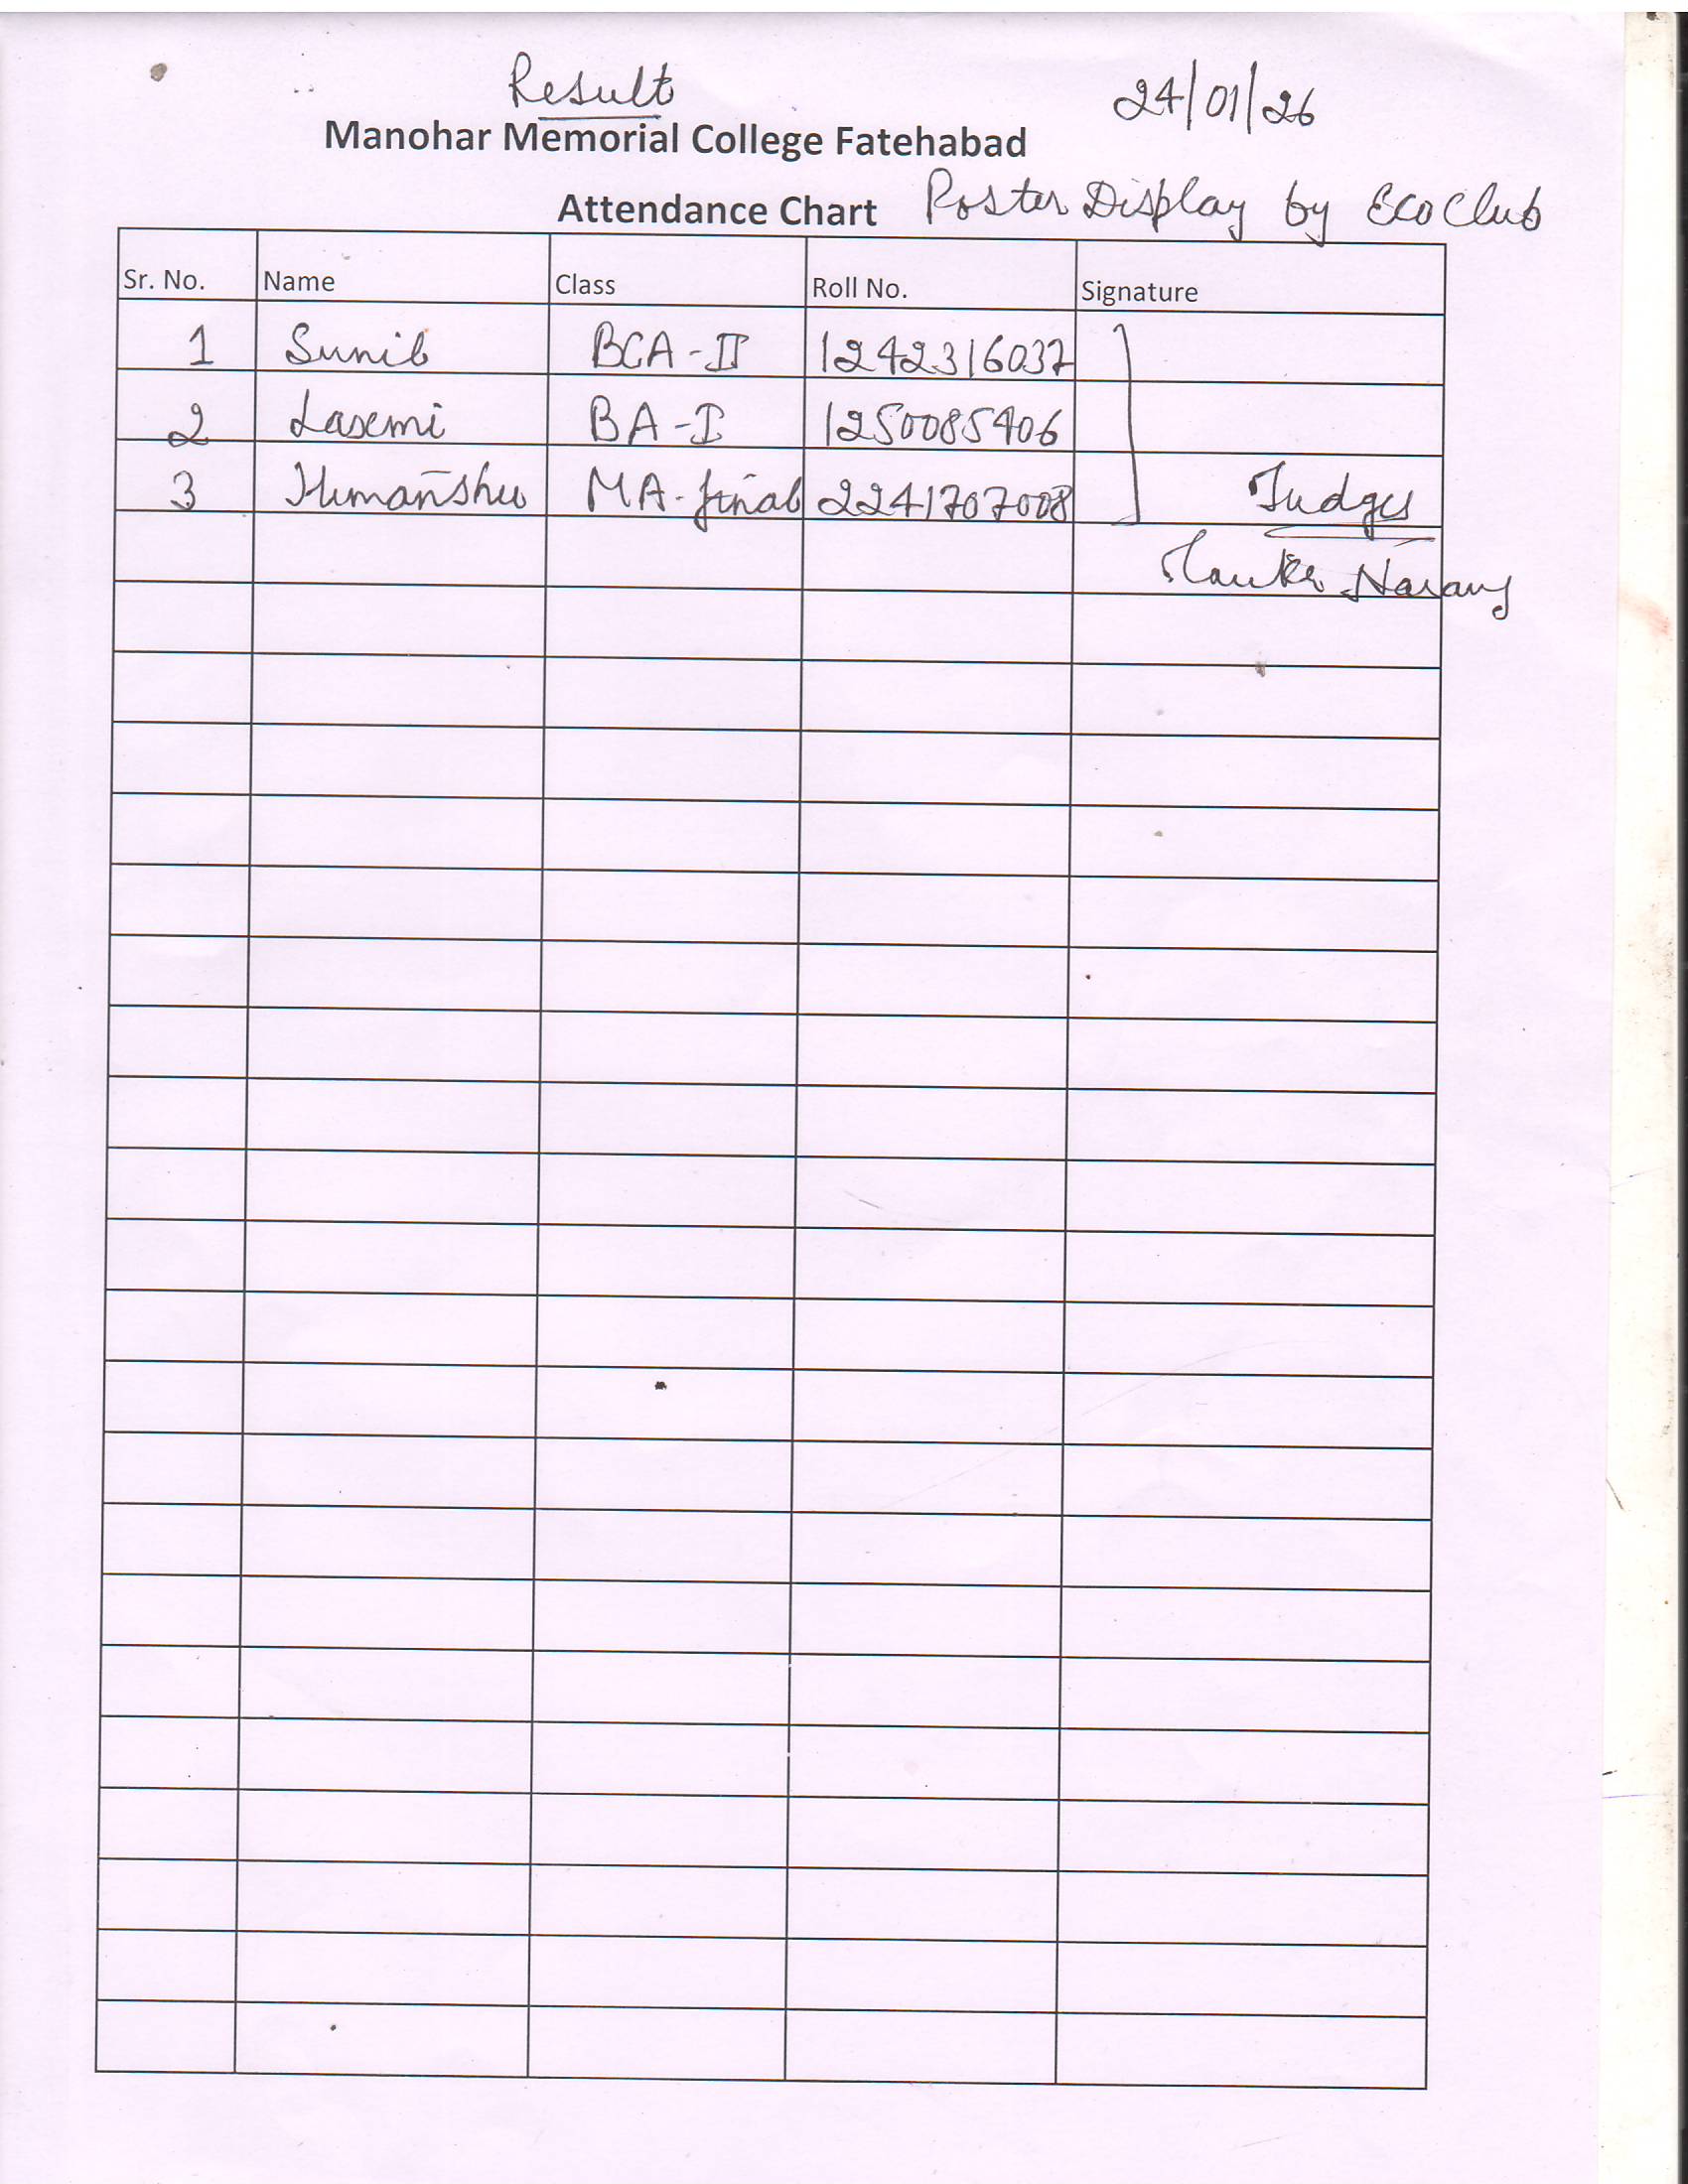 Result 24/01/26
Manohar Memorial College Fatehabad
Attendance Chart Poster Display by Eco Club
Sr. No. Name Class Roll No. Signature
1 Sunil BCA-II 1242316037
2 Laxmi BA-I 1250085406
3 Himanshu MA-final 2241707008 Judges
Narang